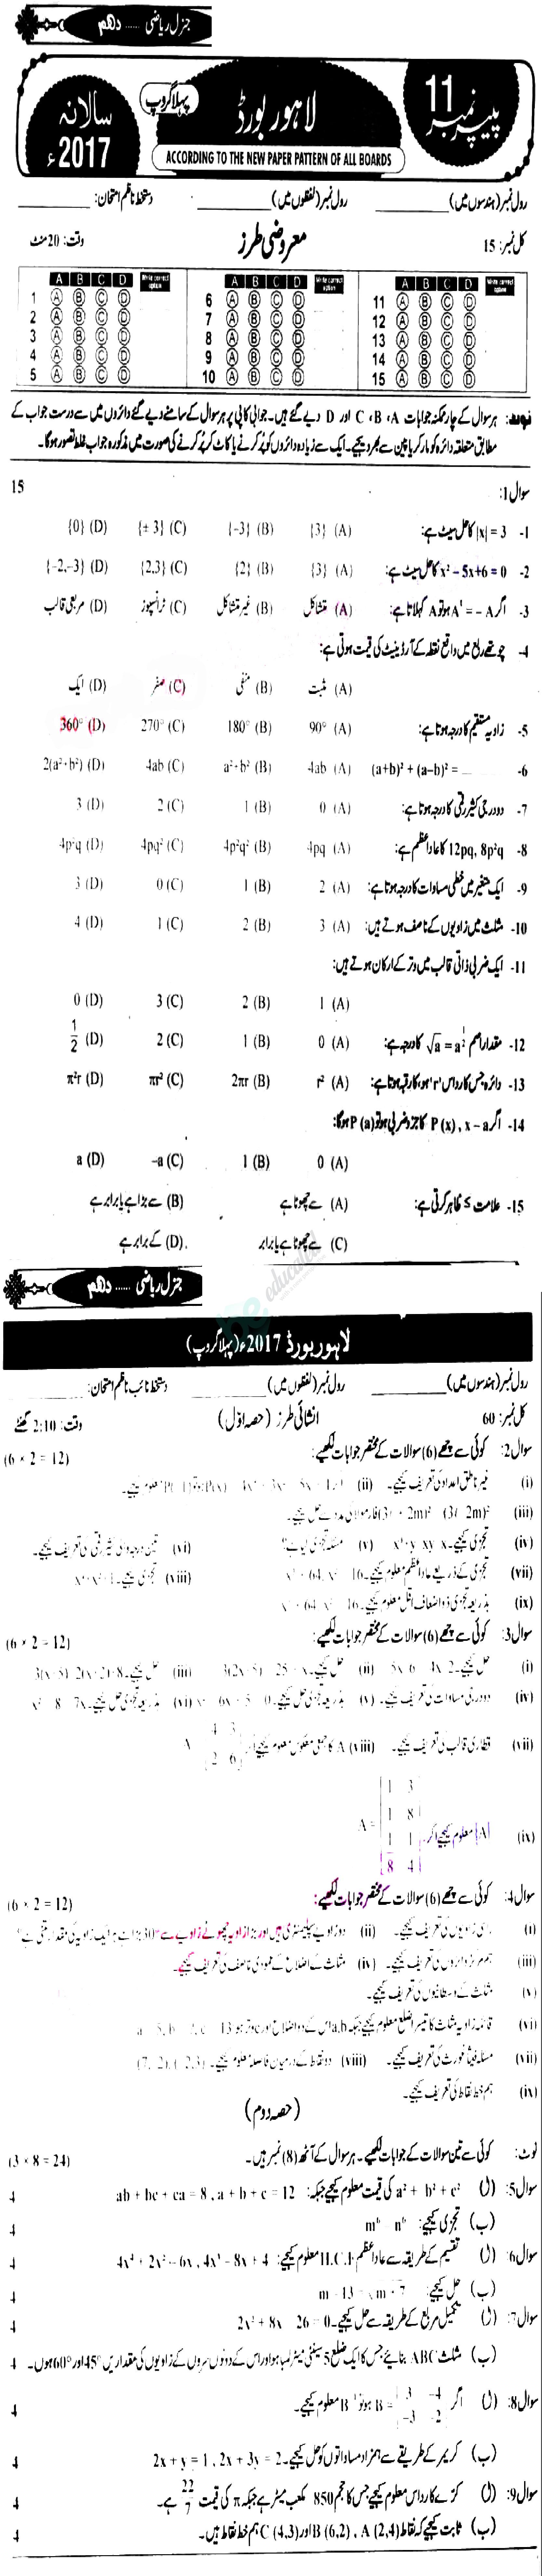 جنرل ریاضی ...... دہم
پیپر نمبر 11
لاہور بورڈ
پہلا گروپ
سالانہ 2017ء
ACCORDING TO THE NEW PAPER PATTERN OF ALL BOARDS
رول نمبر (ہندسوں میں) ____________ رول نمبر (لفظوں میں) ____________ دستخط ناظم امتحان: ____________
کل نمبر: 15 معروضی طرز وقت: 20 منٹ
A B C D Write correct option A B C D Write correct option A B C D Write correct option
1 A B C D 6 A B C D 11 A B C D
2 A B C D 7 A B C D 12 A B C D
3 A B C D 8 A B C D 13 A B C D
4 A B C D 9 A B C D 14 A B C D
5 A B C D 10 A B C D 15 A B C D
نوٹ: ہر سوال کے چار ممکنہ جوابات A، B، C اور D دیے گئے ہیں۔ جوابی کاپی پر ہر سوال کے سامنے دیے گئے دائروں میں سے درست جواب کے
مطابق متعلقہ دائرہ کو مارکر یا پین سے بھر دیجیے۔ ایک سے زیادہ دائروں کو پُر کرنے یا کاٹ کر پُر کرنے کی صورت میں مذکورہ جواب غلط تصور ہوگا۔
سوال 1: 15
1- |x| = 3 کا حل سیٹ ہے: (A) {3} (B) {-3} (C) {± 3} (D) {0}
2- x² − 5x+6 = 0 کا حل سیٹ ہے: (A) {3} (B) {2} (C) {2,3} (D) {-2,-3}
3- اگر Aᵗ = − A ہو تو A کہلاتا ہے: (A) متشاکل (B) غیر متشاکل (C) ٹرانسپوز (D) مربعی قالب
4- چوتھے ربع میں واقع نقطہ کے آرڈینیٹ کی قیمت ہوتی ہے:
(A) مثبت (B) منفی (C) صفر (D) ایک
5- زاویہ مستقیم کا درجہ ہوتا ہے: (A) 90° (B) 180° (C) 270° (D) 360°
6- (a+b)² + (a−b)² = ____ (A) 4ab (B) a²+b² (C) 4ab (D) 2(a²+b²)
7- دو درجی کثیر رقمی کا درجہ ہوتا ہے: (A) 0 (B) 1 (C) 2 (D) 3
8- 12pq, 8p²q کا عاد اعظم ہے: (A) 4pq (B) 4p²q² (C) 4pq² (D) 4p²q
9- ایک متغیر میں خطی مساوات کا درجہ ہوتا ہے: (A) 2 (B) 1 (C) 0 (D) 3
10- مثلث میں زاویوں کے ناصف ہوتے ہیں: (A) 3 (B) 2 (C) 1 (D) 4
11- ایک ضربی ذاتی قالب میں وتر کے ارکان ہوتے ہیں:
(A) 1 (B) 2 (C) 3 (D) 0
12- مقدار اصم √a = a^½ کا درجہ ہے: (A) 0 (B) 1 (C) 2 (D) 1/2
13- دائرہ جس کا رداس 'r' ہو، کا رقبہ ہوتا ہے: (A) r² (B) 2πr (C) πr² (D) π²r
14- اگر P (x) , x − a کا جزو ضربی ہو تو P (a) ہوگا:
(A) 0 (B) 1 (C) −a (D) a
15- علامت ≤ ظاہر کرتی ہے: (A) سے چھوٹا ہے (B) سے بڑا ہے یا برابر ہے
(C) سے چھوٹا ہے یا برابر (D) کے برابر ہے
جنرل ریاضی ...... دہم
لاہور بورڈ 2017ء (پہلا گروپ)
رول نمبر (ہندسوں میں) ____________ رول نمبر (لفظوں میں) ____________ دستخط نائب ناظم امتحان: ____________
کل نمبر: 60 انشائی طرز (حصہ اول) وقت: 2:10 گھنٹے
سوال 2: کوئی سے چھے (6) سوالات کے مختصر جوابات لکھیے: (6 × 2 = 12)
(i) غیر ناطق اعداد کی تعریف کیجیے۔ (ii) معلوم کیجیے۔
(iii) فارمولا کی مدد سے حل کیجیے۔
(iv) تجزی کیجیے۔ (v) (vi) تین درجہ والی کثیر رقمی کی تعریف کیجیے۔
(vii) تجزی کے ذریعے عاد اعظم معلوم کیجیے۔ (viii) تجزی کیجیے۔
(ix) بذریعہ تجزی ذو اضعاف اقل معلوم کیجیے۔
سوال 3: کوئی سے چھے (6) سوالات کے مختصر جوابات لکھیے: (6 × 2 = 12)
(i) حل کیجیے۔ (ii) حل کیجیے۔ (iii) حل کیجیے۔
(iv) دو درجی مساوات کی تعریف کیجیے۔ (v) بذریعہ تجزی حل کیجیے۔ (vi) بذریعہ تجزی حل کیجیے۔
(vii) قطاری قالب کی تعریف کیجیے۔ (viii) A کا جمعی معکوس معلوم کیجیے اگر
(ix) |A| معلوم کیجیے اگر A = 1 3 1 8 1 1 8 4
سوال 4: کوئی سے چھے (6) سوالات کے مختصر جوابات لکھیے: (6 × 2 = 12)
(i) راسی زاویوں کی تعریف کیجیے۔ (ii) دو زاویے سپلیمنٹری ہیں اور بڑا زاویہ چھوٹے زاویے سے 30° بڑا ہے ہر ایک زاویہ کی مقدار کتنی ہے؟
(iii) ہم مرکز دائروں کی تعریف کیجیے۔ (iv) مثلث کے اضلاع کے عمودی ناصف کی تعریف کیجیے۔
(v) مثلث کے وسطانیوں کی تعریف کیجیے۔
(vi) قائمۃ زاویہ مثلث کا تیسرا ضلع معلوم کیجیے جبکہ a,b اس کے دو اضلاع اور c وتر ہو
(vii) مسئلہ فیثا غورث کی تعریف کیجیے۔ (viii) دو نقاط کے درمیان فاصلہ معلوم کیجیے۔ (7, -2), (-2,3)
(ix) ہم خط نقاط کی تعریف کیجیے۔
(حصہ دوم)
نوٹ: کوئی سے تین سوالات کے جوابات لکھیے۔ ہر سوال کے آٹھ (8) نمبر ہیں۔ (3 × 8 = 24)
سوال 5: (ل) a² + b² + c² کی قیمت معلوم کیجیے جبکہ: ab + bc + ca = 8 , a + b + c = 12 4
(ب) تجزی کیجیے: m⁶ − n⁶ 4
سوال 6: (ل) تقسیم کے طریقہ سے عاد اعظم H.C.F معلوم کیجیے: 4
(ب) حل کیجیے: 4
سوال 7: (ل) تکمیل مربع کے طریقہ سے حل کیجیے۔ 2x² + 8x − 26 = 0 4
(ب) مثلث ABC بنائیے جس کا ایک ضلع 5 سینٹی میٹر لمبا ہو اور اس کے دونوں سروں کے زاویوں کی مقداریں 45° اور 60° ہوں۔ 4
سوال 8: (ل) اگر B = 3 −4 −3 2 ہو تو B⁻¹ معلوم کیجیے۔ 4
(ب) کریمر کے طریقے سے ہمزاد مساواتوں کو حل کیجیے۔ 2x + y = 1 , 2x + 3y = 2 4
سوال 9: (ل) کرے کا رداس معلوم کیجیے جس کا حجم 850 مکعب میٹر ہے جبکہ π کی قیمت 22/7 ہے۔ 4
(ب) ثابت کیجیے کہ نقاط A (2,4) ، B (6,2) اور C (4,3) ہم خط نقاط ہیں۔ 4